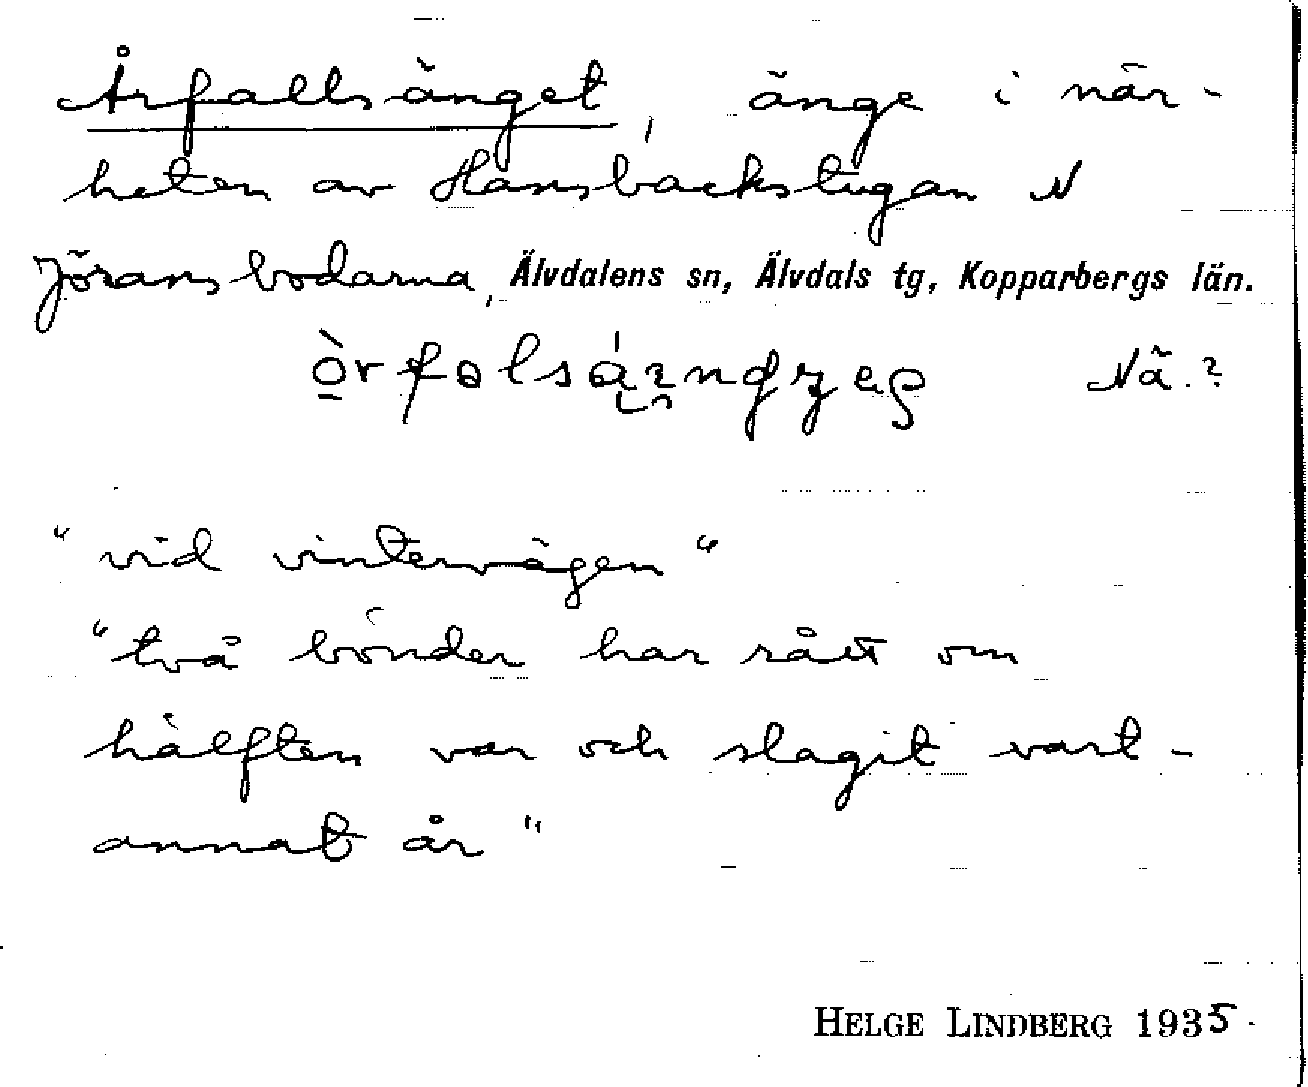 Årfallsänget, änge i när-
heten av Hansbackstugan N
Jöransbodarna, Älvdalens sn, Älvdals tg, Kopparbergs län.
Nä.?
"vid vintervägen"
"två bönder har rått om
hälften var och slagit vart-
annat år"
HELGE LINDBERG 1935.